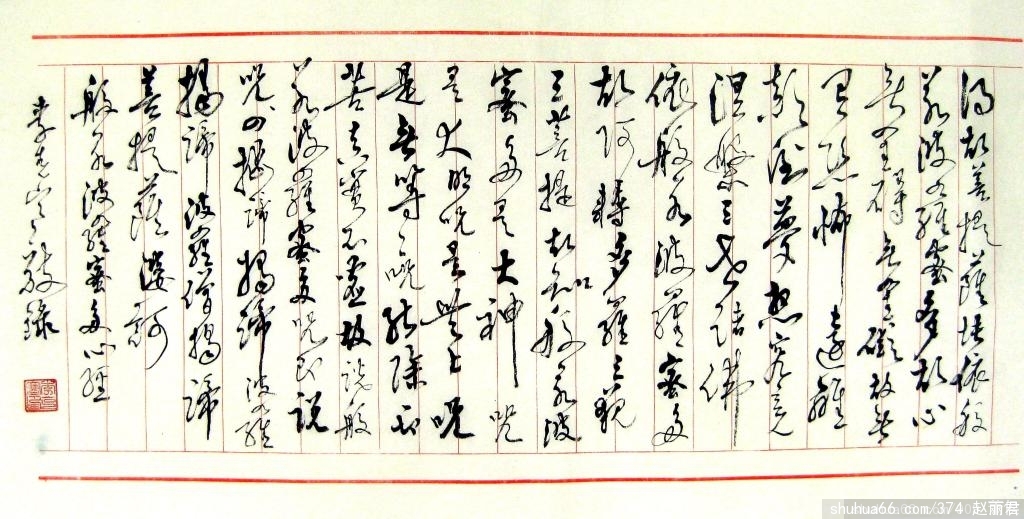 得故菩提薩埵依般
若波羅蜜多故心
無罣礙無罣礙故無
有恐怖遠離
顛倒夢想究竟
涅槃三世諸佛
依般若波羅蜜多
故阿耨多羅三藐
三菩提故知般若波
蜜多是大神咒
是大明咒是無上咒
是無等々咒能除一切
苦真實不虛故說般
若波羅蜜多咒即說
咒曰揭諦揭諦波羅
揭諦波羅僧揭諦
菩提薩婆訶
般若波羅蜜多心經
李敬錄
shuhua66.com/374 赵丽君